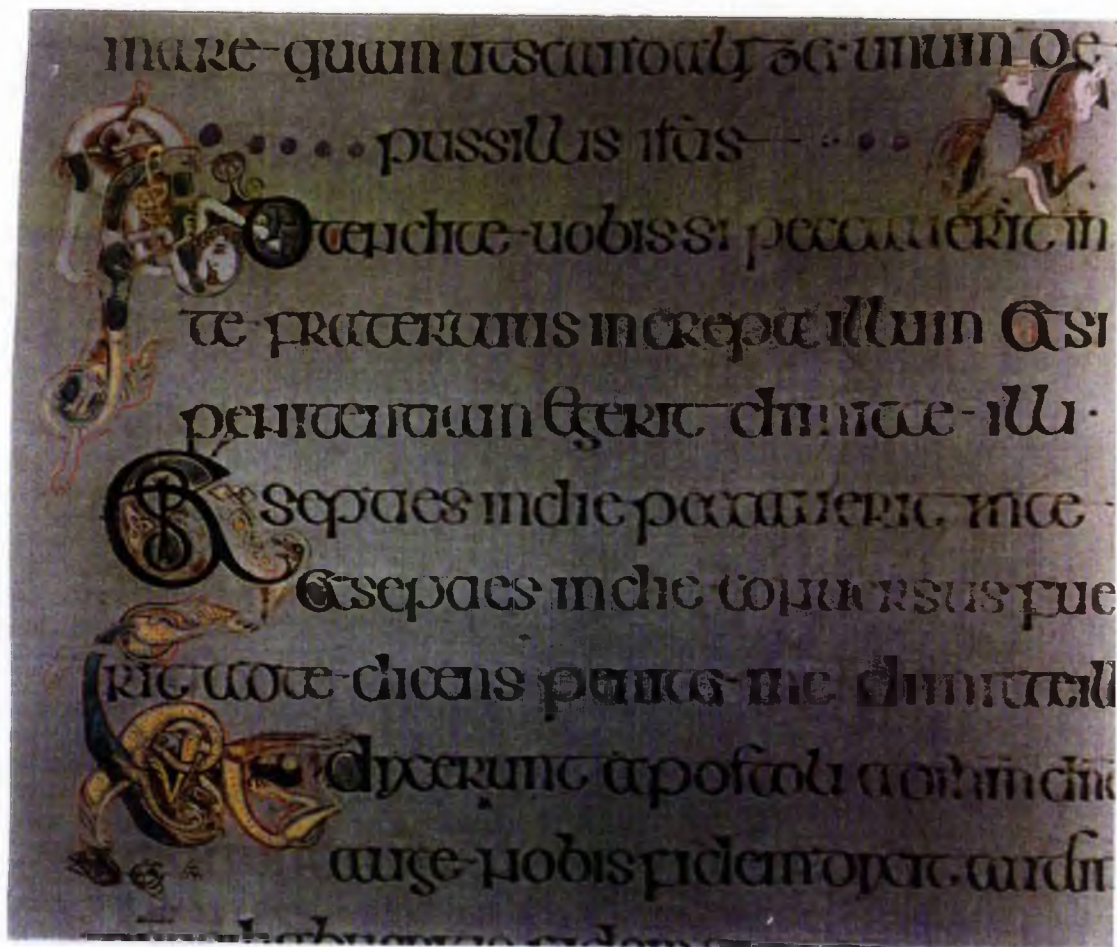 mare quam utscandalizet unum de
pussillis istis
Attendite uobis si peccauerit in
te frater tuus increpa illum Et si
penitentiam egerit dimitte illi
Et septies in die peccauerit in te
Et septies in die conuersus fue
rit ad te dicens penitet me dimitte ill
Et dixerunt apostoli
auge nobis fidem dixit autem